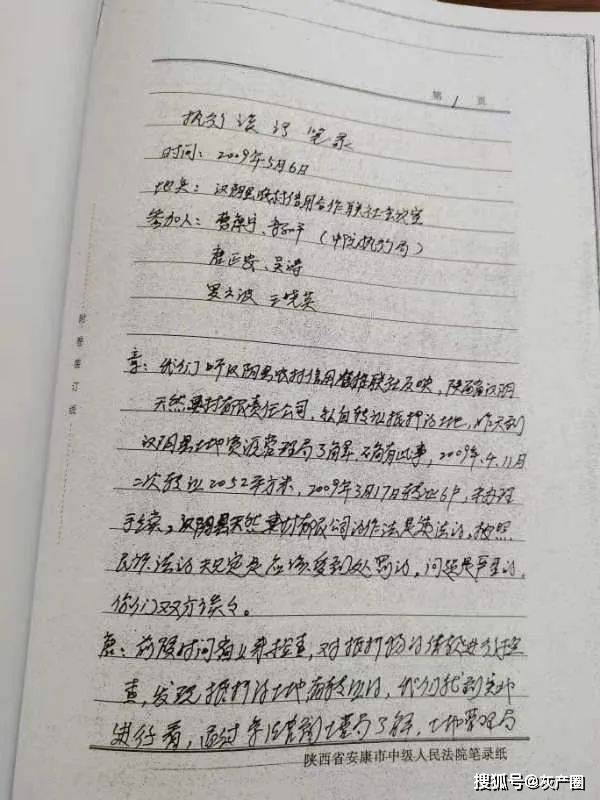 第 1 页
执行谈话笔录
时间:2009年5月6日
地点:汉阴县农村信用合作联社会议室
参加人:曹 、 平(中院执行局)
庞正安、吴涛
罗文波 王晓英
附卷装订线
:我们听汉阴县农村信用 联社反映,陕西省汉阴
天然 材有限责任公司,私自转让抵押的土地,昨天到
汉阴县土地资源管理局了解,确有此事,2009年.4.11月
二次转让2052平方米,2009年3月17日转让6户,未办理
手续。汉阴县天然 材有限公司的作法是违法的,按照
民诉法的规定是应该受到处罚的,问题是严重的,
你们双方谈谈。
庞:前段时间 检查,对抵押物的 进行检
查,发现抵押的土地有转让的,我们就到实地
进行看,通过 国土局了解,土地管理局
陕西省安康市中级人民法院笔录纸
搜狐号@灰产圈